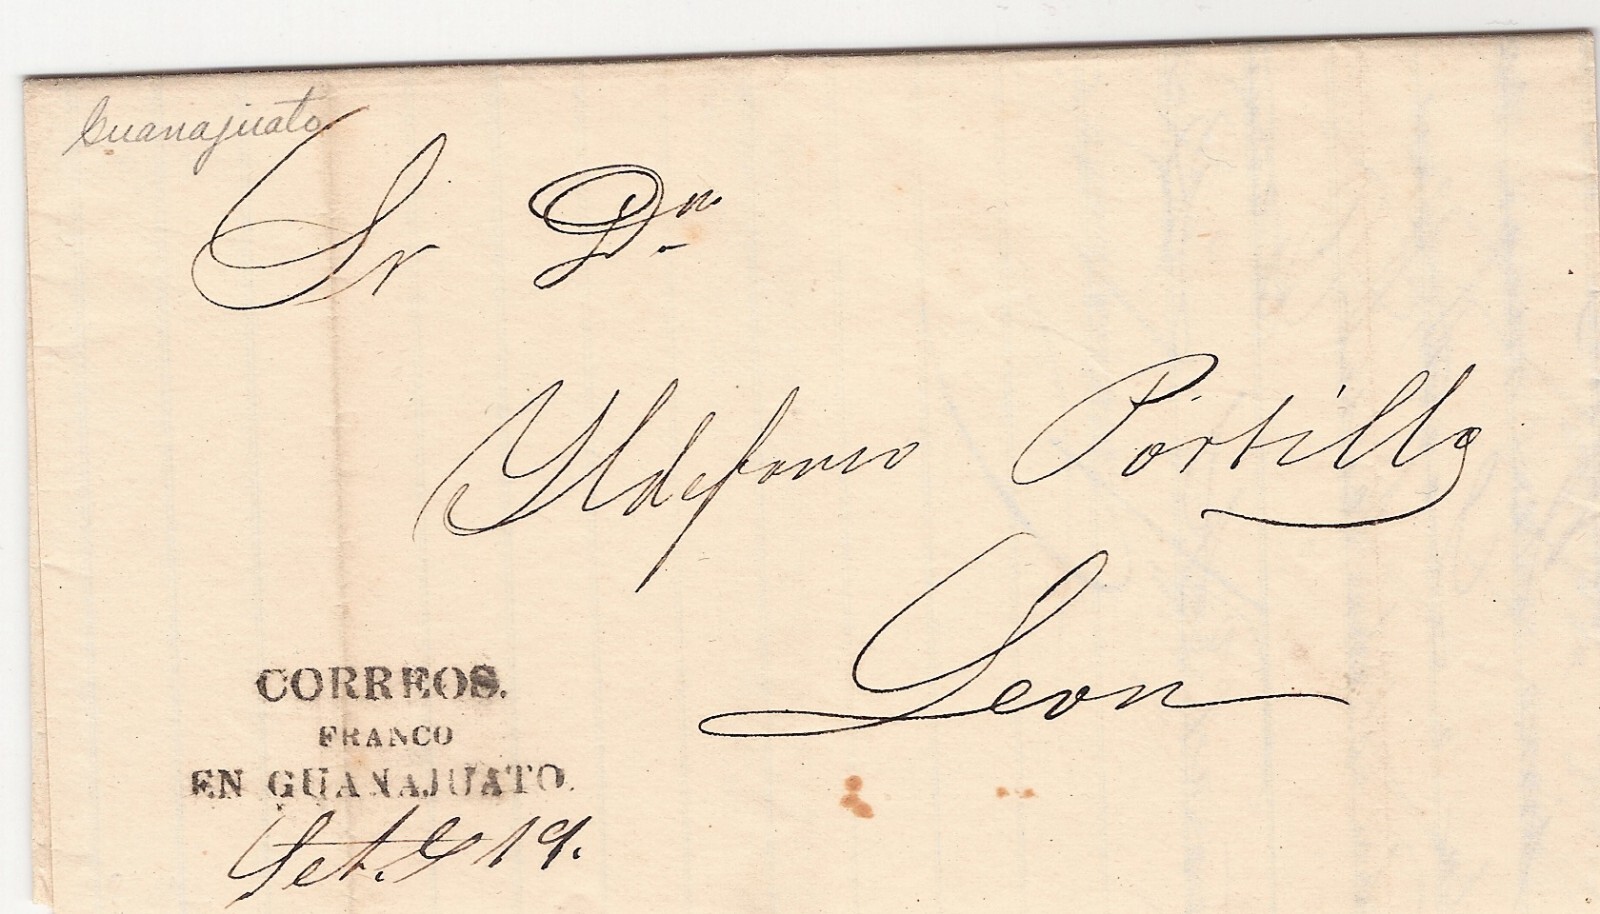 Guanajuato
Sr Dn.
Yldefonso Portillo
Leon
CORREOS.
FRANCO
EN GUANAJUATO.
Set. 19.